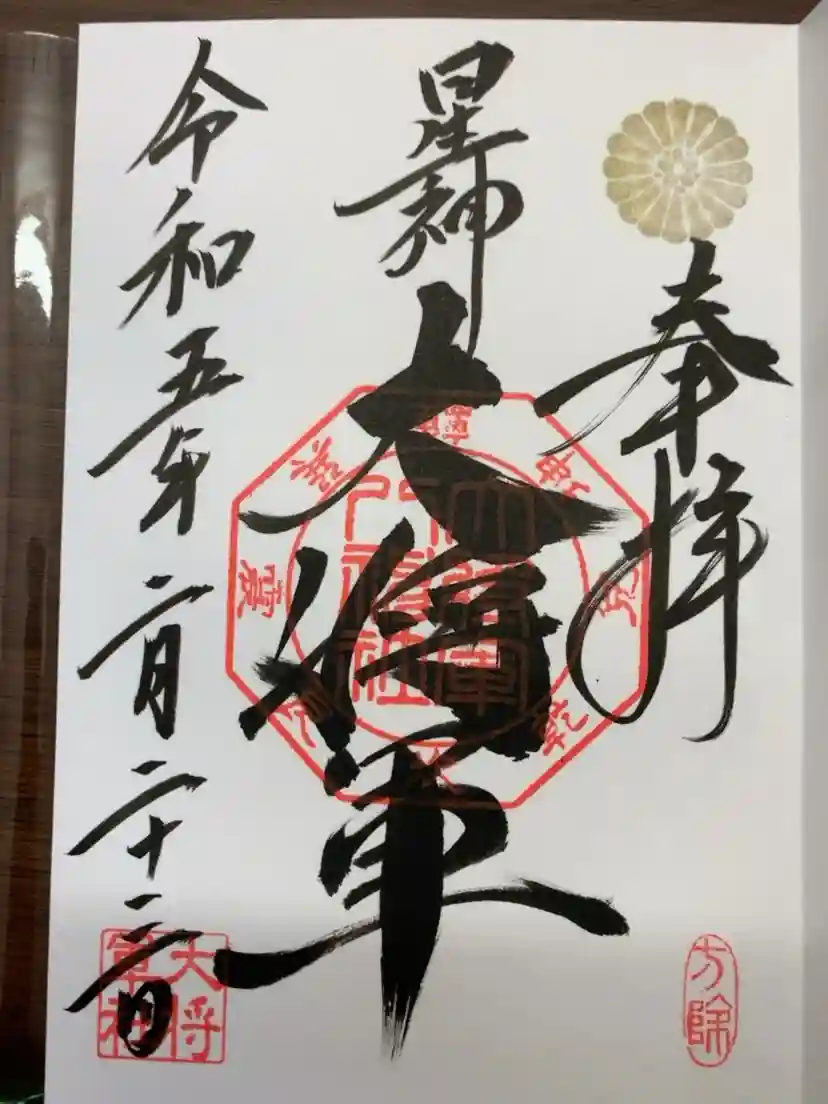 奉拝
星神
大将軍
令和五年二月二十三日
方除
大將軍
八神社
大将